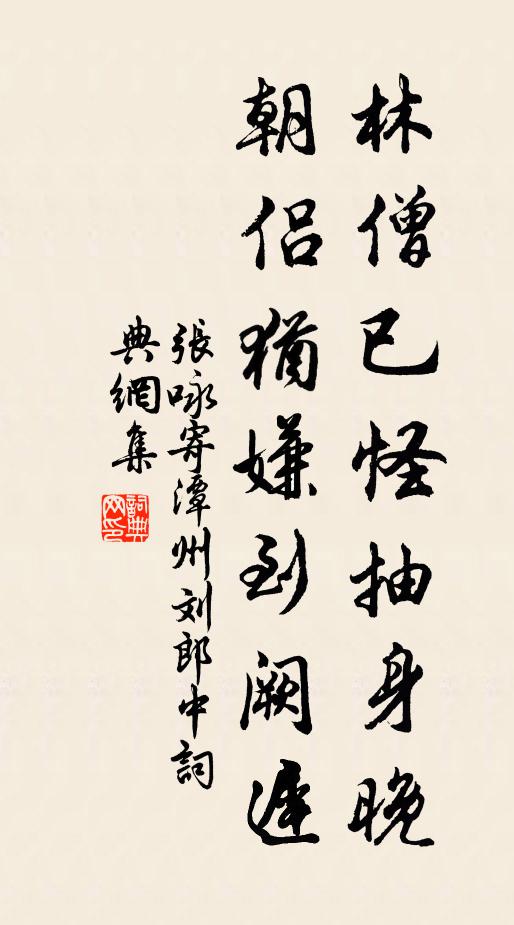 林僧已怪抽身晚
朝侣猶嫌到闕遲
張咏寄潭州刘郎中詞
典網集
詞典
网印